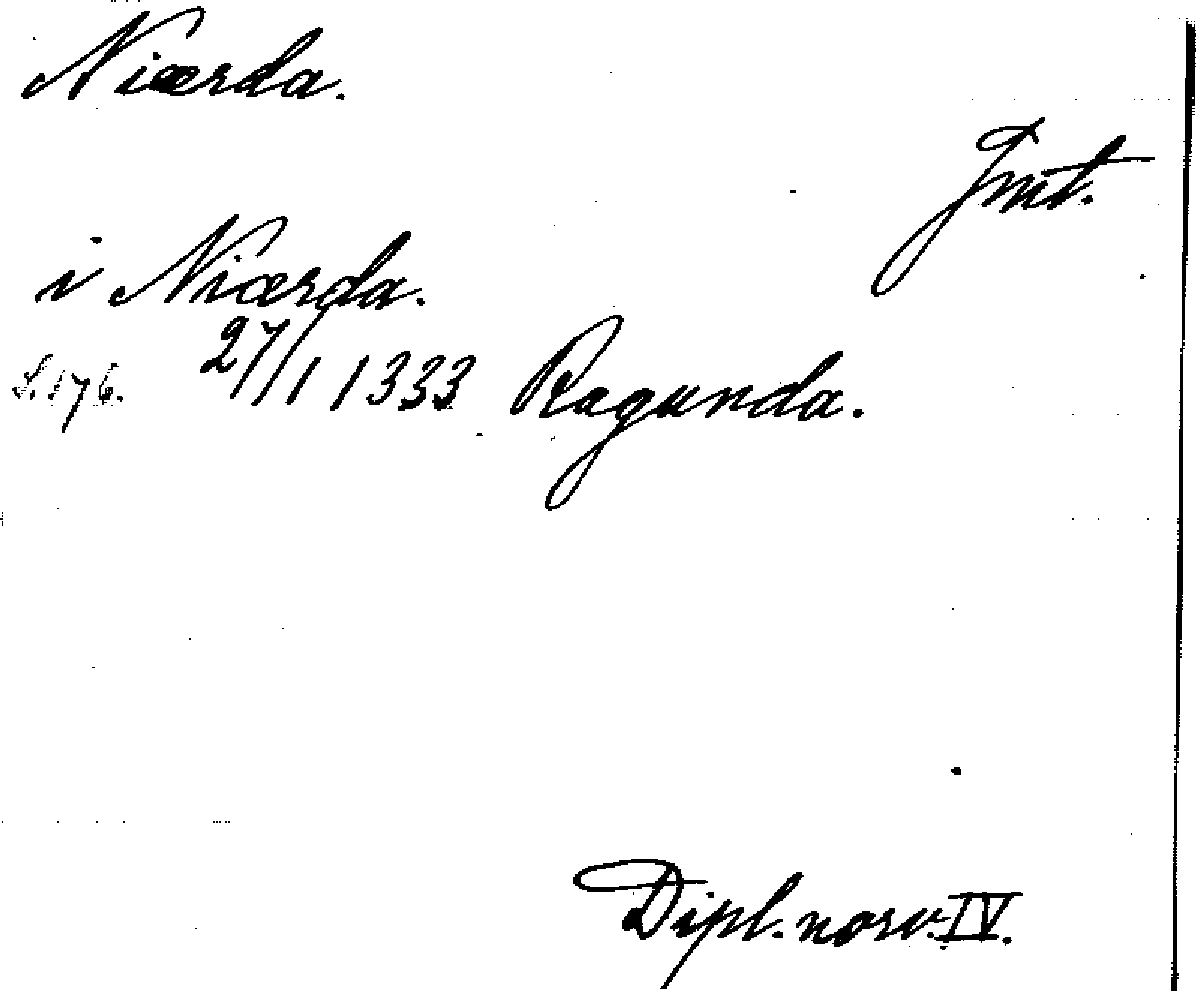 Niærda.
Jmt.
i Niærda.
S. 176. 27/1 1333 Ragunda.
Dipl. norv. IV.